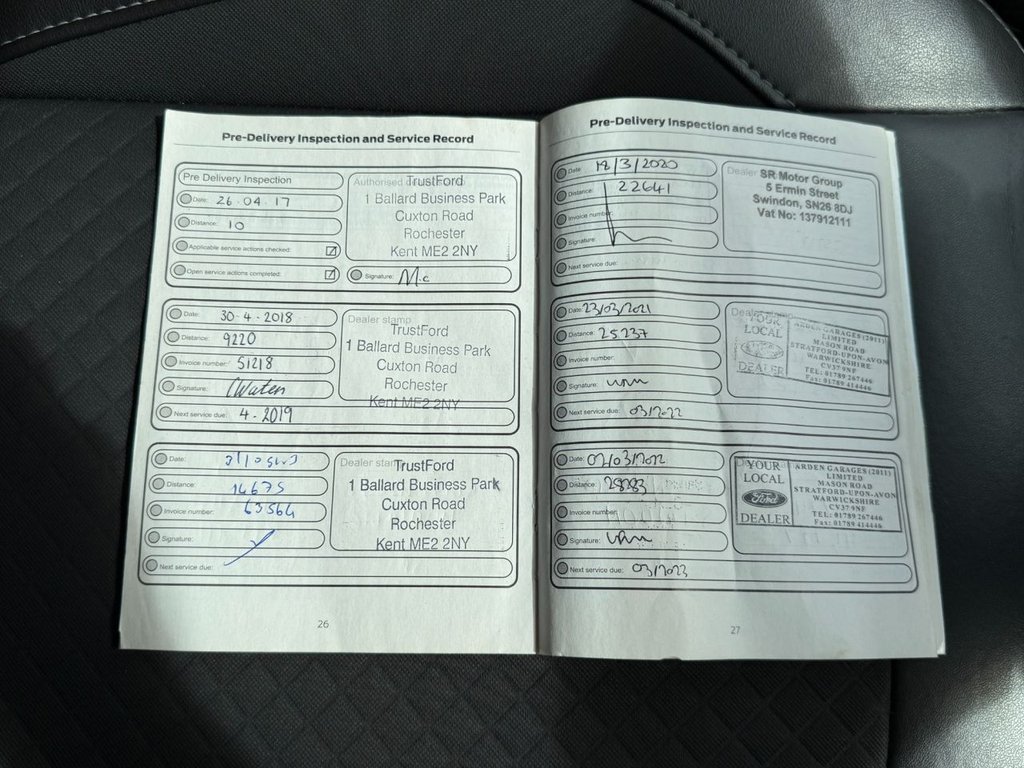 Pre-Delivery Inspection and Service Record
Pre Delivery Inspection
Date: 26.04.17
Distance: 10
Applicable service actions checked:
Open service actions completed:
Authorised
TrustFord
1 Ballard Business Park
Cuxton Road
Rochester
Kent ME2 2NY
Signature: M.c
Date: 30-4-2018
Distance: 9220
Invoice number: 51218
Signature:
Next service due: 4-2019
Dealer stamp
TrustFord
1 Ballard Business Park
Cuxton Road
Rochester
Kent ME2 2NY
Date:
Distance: 14675
Invoice number: 63564
Signature:
Next service due:
Dealer stamp
TrustFord
1 Ballard Business Park
Cuxton Road
Rochester
Kent ME2 2NY
26
Pre-Delivery Inspection and Service Record
Date: 18/3/2020
Distance: 22641
Invoice number:
Signature:
Next service due:
Dealer
SR Motor Group
5 Ermin Street
Swindon, SN26 8DJ
Vat No: 137912111
Date: 23/03/2021
Distance: 25.237
Invoice number:
Signature:
Next service due: 03/2022
Dealer stamp
YOUR
LOCAL
Ford
DEALER
ARDEN GARAGES (2011)
LIMITED
MASON ROAD
STRATFORD-UPON-AVON
WARWICKSHIRE
CV37 9NF
TEL: 01789 267446
Fax: 01789 414446
Date: 02/03/2022
Distance: 28283
Invoice number:
Signature:
Next service due: 03/2023
YOUR
LOCAL
Ford
DEALER
ARDEN GARAGES (2011)
LIMITED
MASON ROAD
STRATFORD-UPON-AVON
WARWICKSHIRE
CV37 9NF
TEL: 01789 267446
Fax: 01789 414446
27